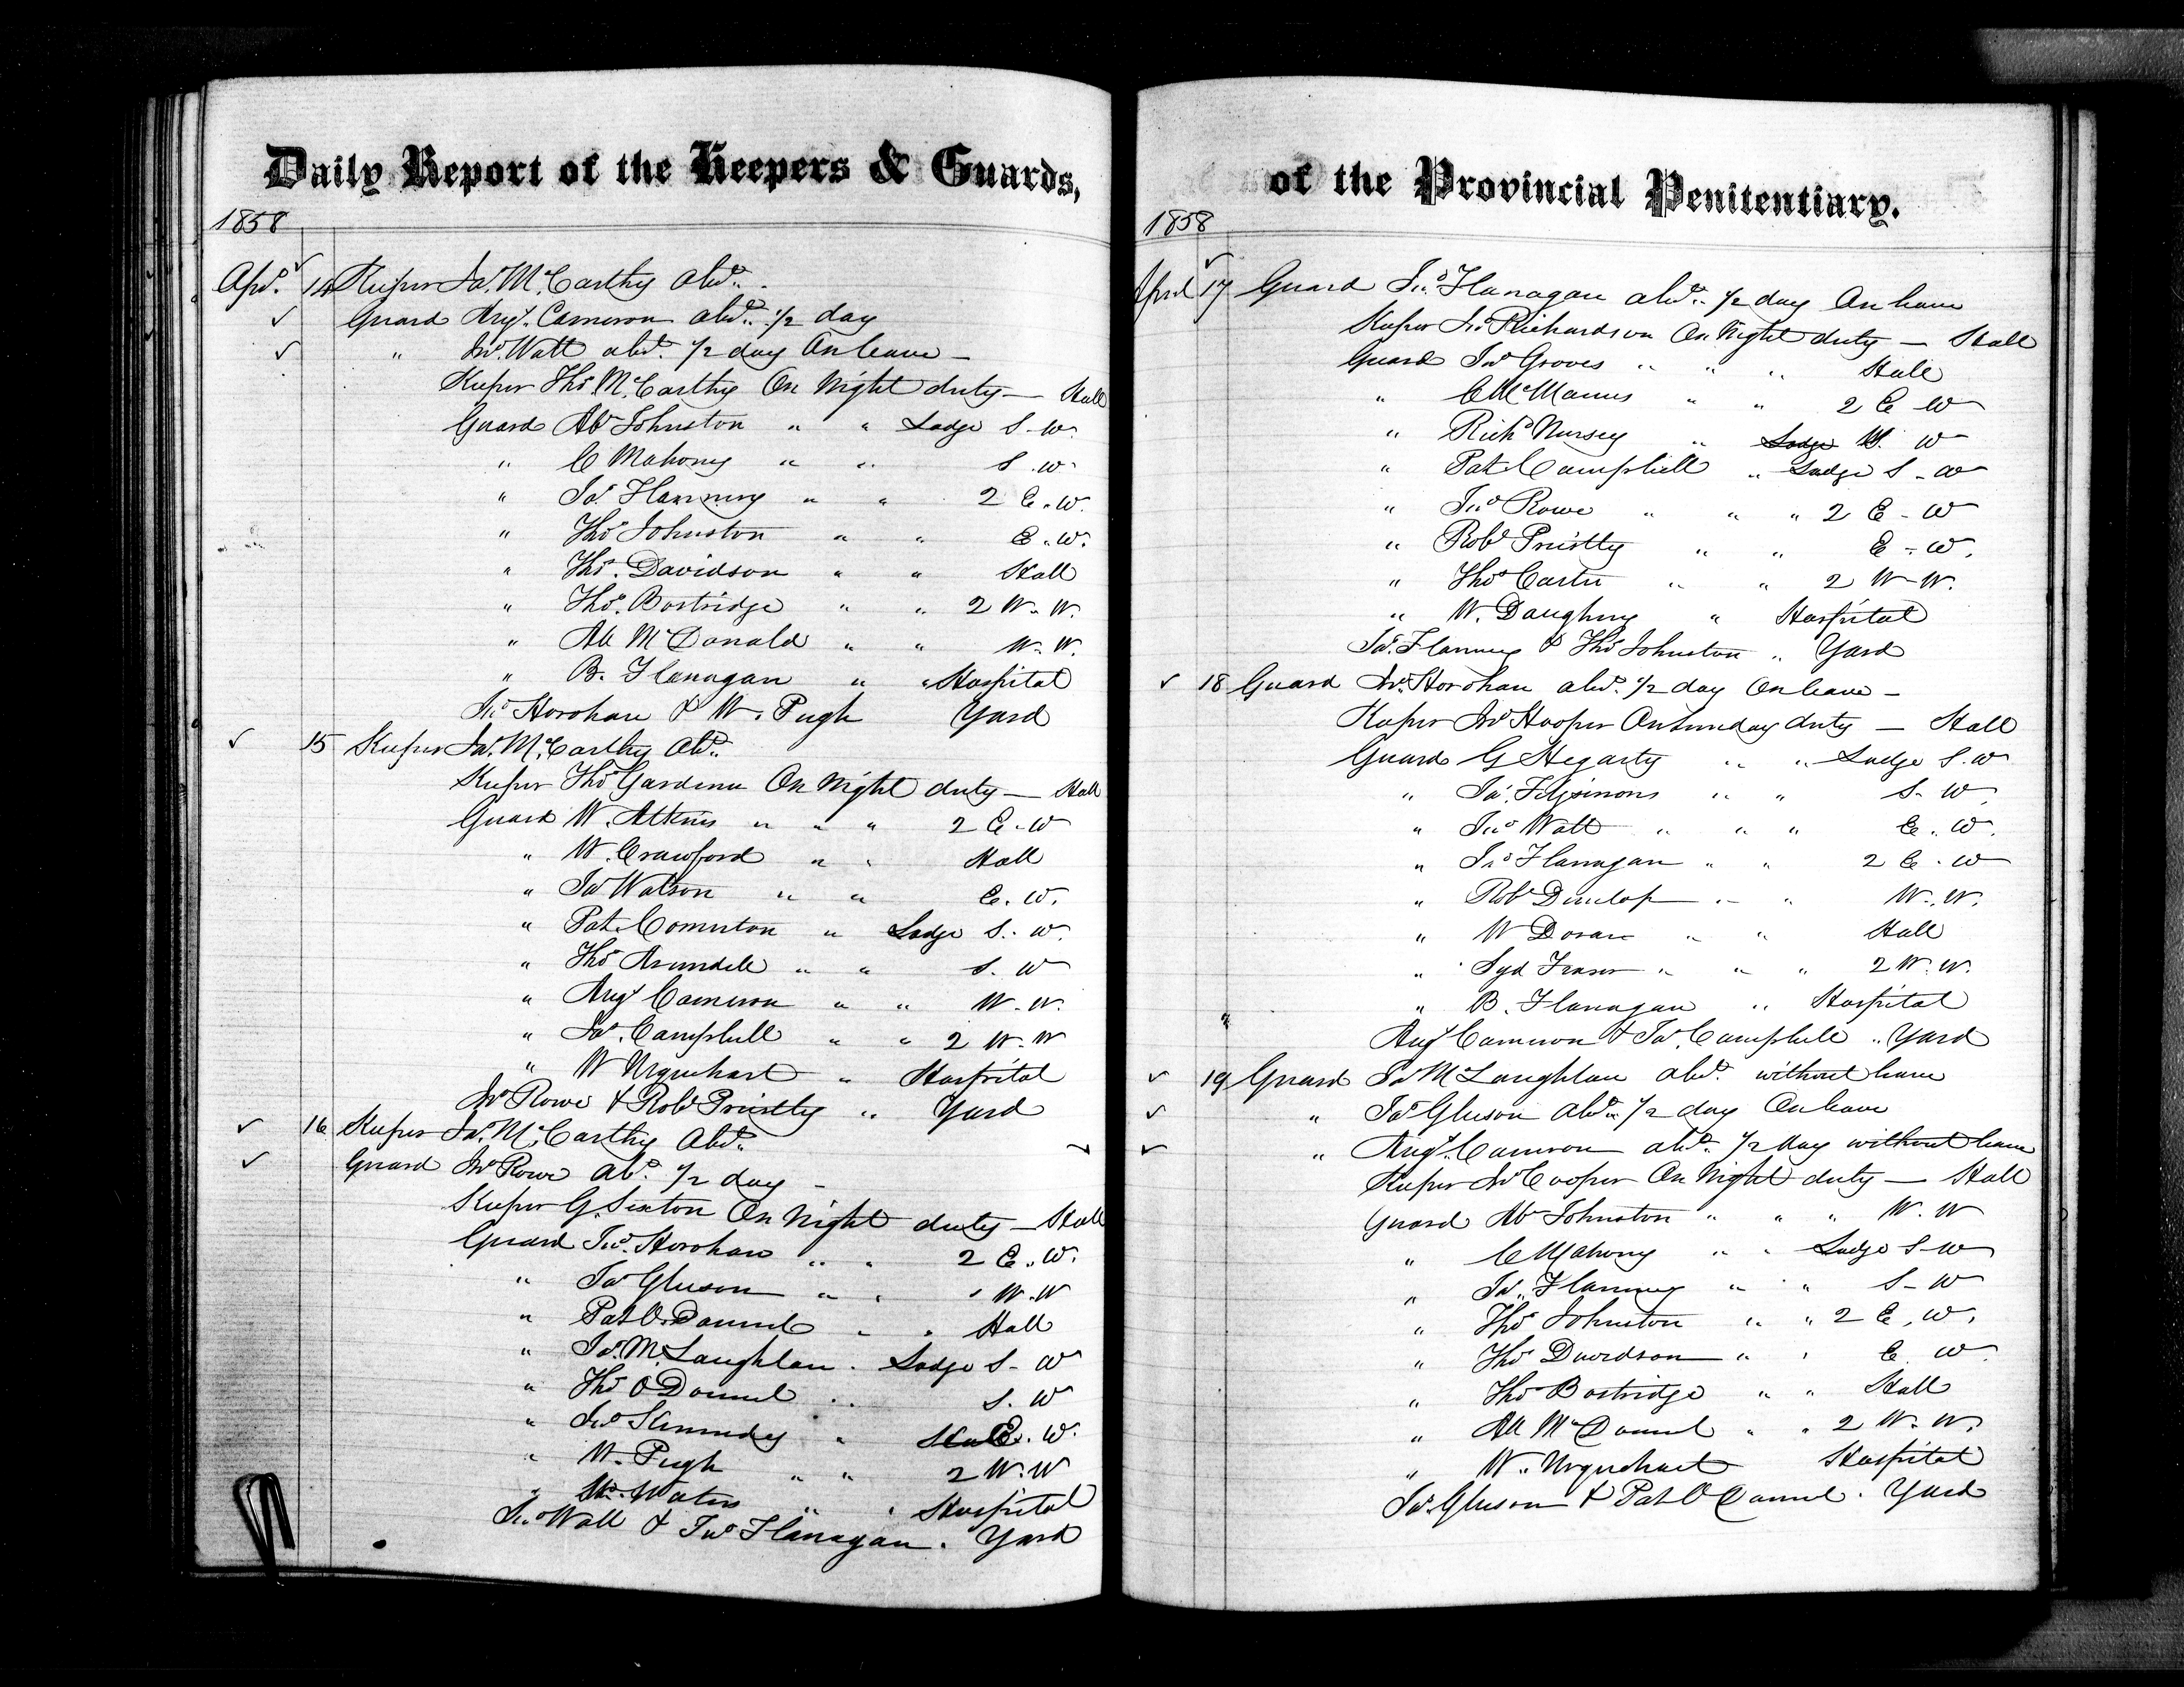 Daily Report of the Keepers & Guards,
1858
Apl. 14 Keeper Ja.s McCarthy abd.
Guard Ang.s Cameron abd. 1/2 day
" Jno. Watt abd. 1/2 day On leave —
Keeper Tho.s McCarthy On Night duty — Hall
Guard Ab Johnston " " Lodge S. W.
" C Mahony " " S. W.
" Ja.s Flanning " " 2 E. W.
" Tho.s Johnston " " E. W.
" Tho.s Davidson " " Hall
" Tho.s Bostridge " " 2 W. W.
" Al McDonald " " W. W.
" B. Flanagan " " Hospital
Jno. Horohan & W. Pugh Yard
15 Keeper Ja.s McCarthy abd.
Keeper Tho.s Gardiner On Night duty — Hall
Guard W. Atkins " " " 2 E. W
" W. Crawford " " Hall
" Ja.s Watson " " E. W.
" Pat. " Lodge S. W.
" Tho.s Arundell " " S. W
" Ang.s Cameron " " W. W.
" Ja.s Campbell " " 2 W. W
" W Urquehart " Hospital
Jno Rowe & Rob.t Pristly " Yard
16 Keeper Ja.s McCarthy abd.
Guard Jno Rowe abd. 1/2 day —
Keeper G. Sexton On Night duty — Hall
Guard Jno. Horohan " " 2 E. W.
" Ja.s Gleeson " " W. W
" Pat O.Donnel " " Hall
" Ja.s McLaughlan " Lodge S. W
" Tho.s O Donnel " " S. W
" Jno Kennedy " E. W.
" W. Pugh " " 2 W. W
" Waters " " Hospital
Jno Watt & Jno Flanagan . Yard
of the Provincial Penitentiary.
1858
April 17 Guard Jno. Flanagan abd. 1/2 day On leave
Keeper Jno Richardson On Night duty — Hall
Guard Ja.s Groves " " " Hall
" C McManus " " 2 E W
" Rich.d Nursey " Lodge W. W
" Pat. Campbell " Lodge S. W
" Jno Rowe " " " 2 E. W
" Rob.t Pristly " " E. W.
" Tho.s Carter " " 2 W. W.
" W. Daughney " Hospital
Ja.s Flanning & Tho.s Johnston " Yard
18 Guard Jno. Horohan abd. 1/2 day On leave —
Keeper Jno Hooper On Sunday duty — Hall
Guard G Hegarty " " Lodge S. W
" Ja.s Fitzsimons " " S. W.
" Jno Watt " " " E. W.
" Jno Flanagan " " 2 E. W
" Rob.t Dunlop " " W. W.
" W Doran " " Hall
" Syd Fraser " " " 2 W. W.
" B. Flanagan " Hospital
Ang.s Cameron & Ja.s Campbell " Yard
19 Guard Ja.s McLaughlan abd. without leave
" Ja.s Gleeson abd. 1/2 day On leave
" Ang.s Cameron abd. 1/2 day without leave
Keeper Jno Cooper On Night duty — Hall
Guard Ab Johnston " " " W. W
" C Mahony " " Lodge S. W
" Ja.s Flanning " " S. W
" Tho.s Johnston " " 2 E. W.
" Tho.s Davidson " " E. W.
" Tho.s Bostridge " " Hall
" Al McDonnel " " 2 W. W.
" W. Urquehart Hospital
Ja.s Gleeson & Pat O Donnel . Yard